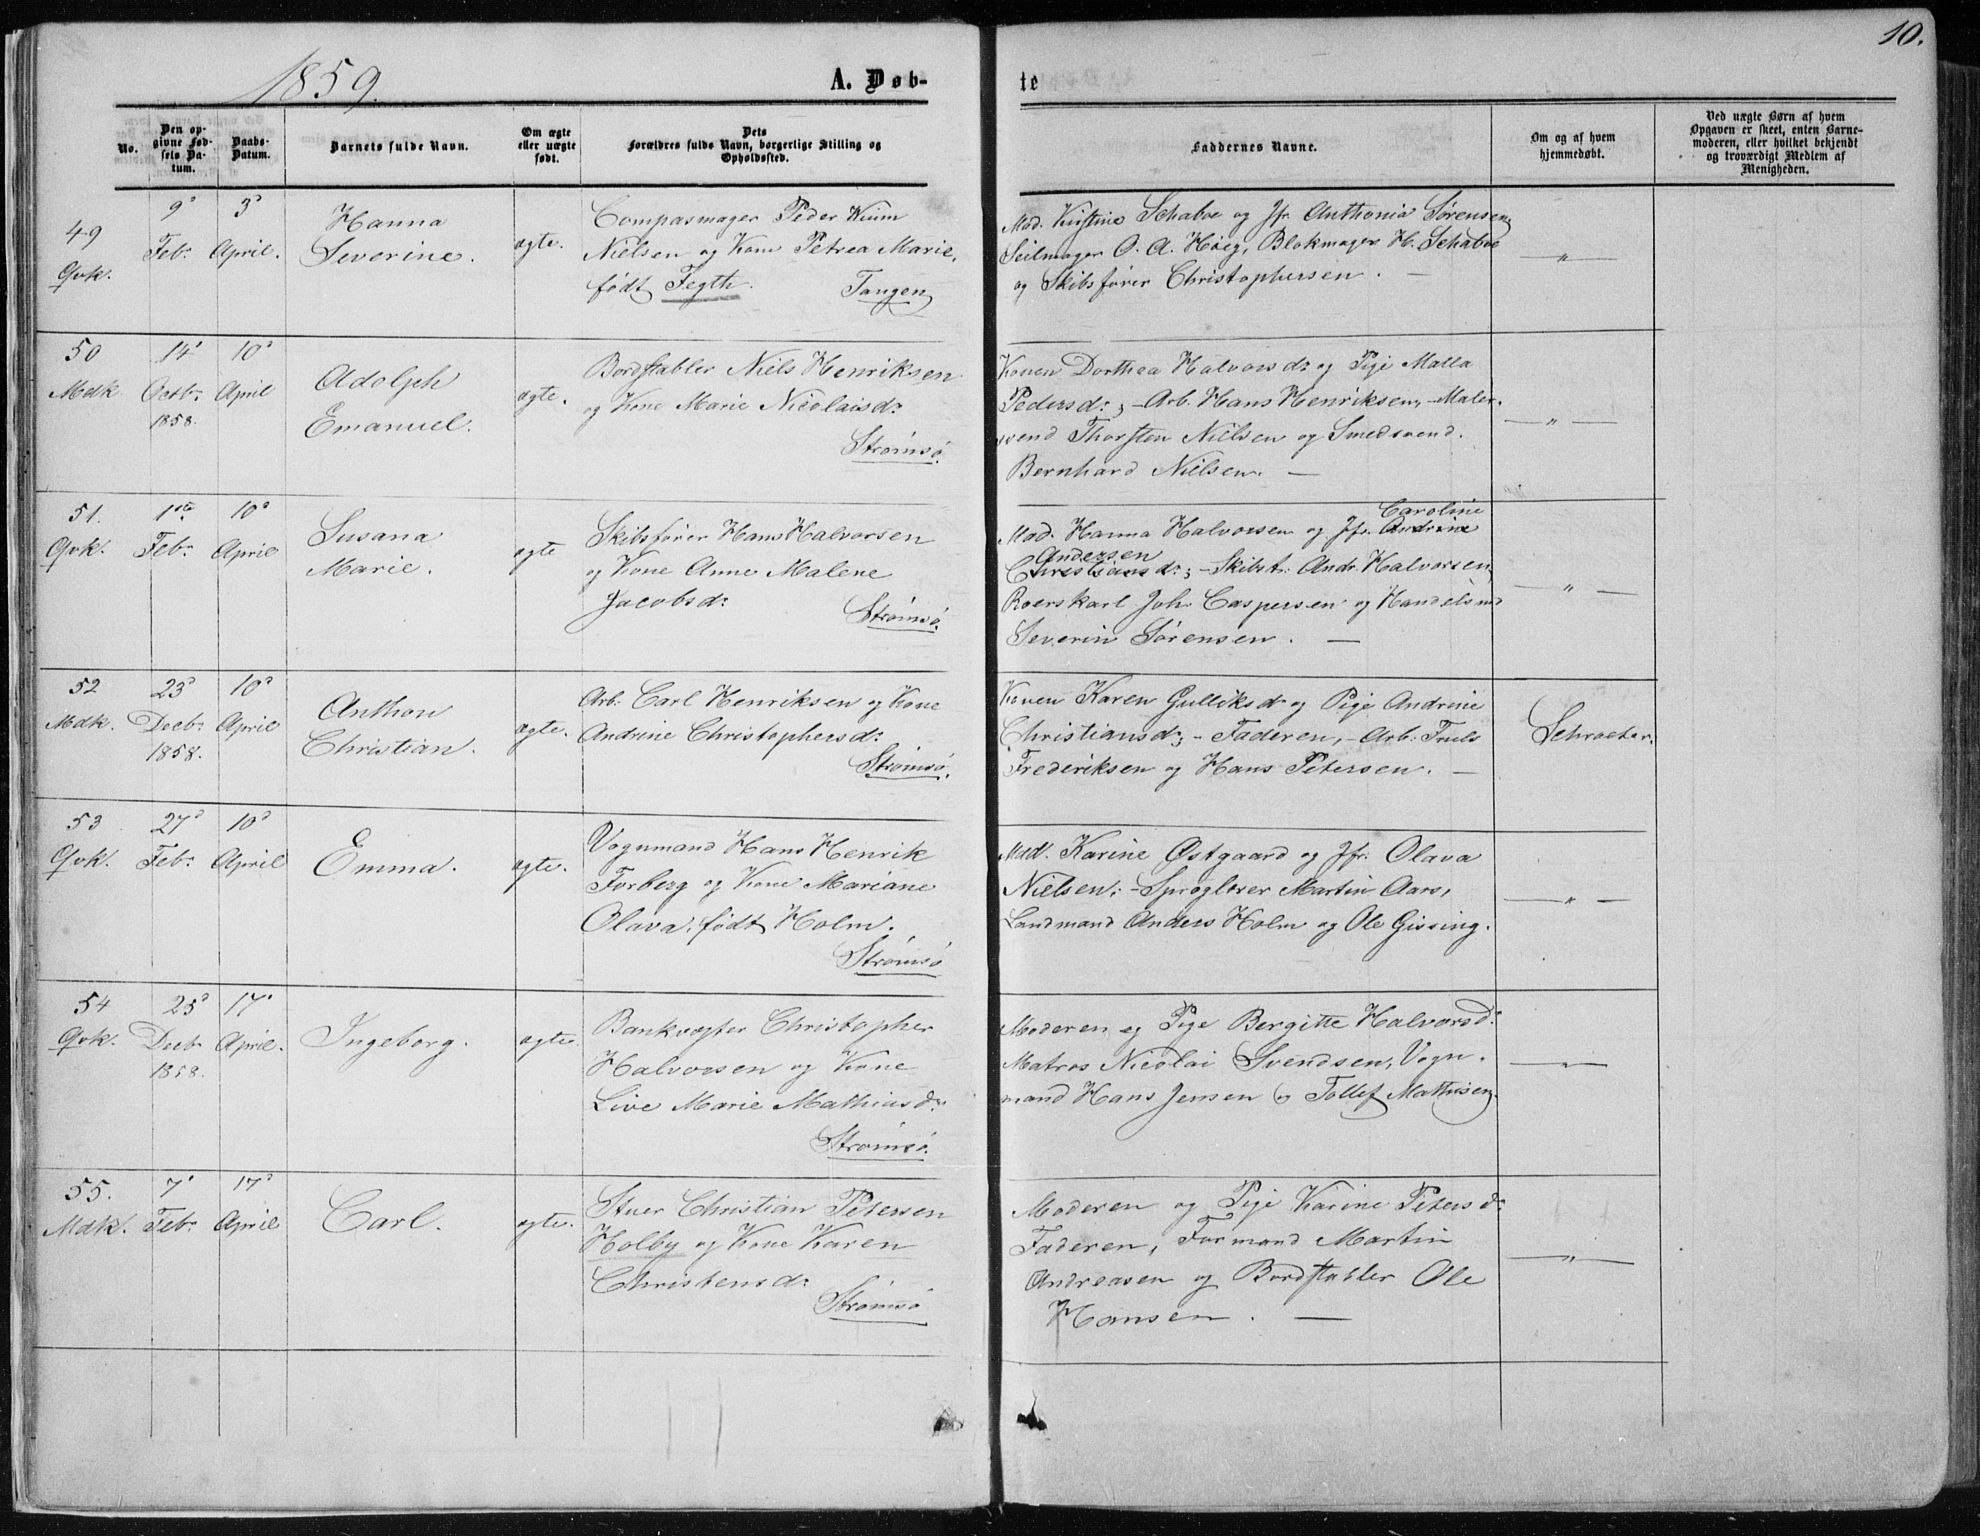 1859.
A. Døb-
te
10.
No.
Den op-
givne Fød-
sels Da-
tum.
Daabs-
Datum.
Barnets fulde Navn.
Om ægte
eller uægte
født.
Dets
Forældres fulde Navn, borgerlige Stilling og
Opholdssted.
Faddernes Navne.
Om og af hvem
hjemmedøbt.
Ved uægte Børn af hvem
Opgaven er skeet, enten Barne-
moderen, eller hvilket bekjendt
og troværdigt Medlem af
Menigheden.
49
Qvk.
9d
Febr
3d
April.
Hanna
Severine.
ægte.
Compasmager Peder Kium
Nielsen og Kone Petrea Marie,
født Fegth. Tangen
Mad. Kirstine Schaboe og Jfr. Anthonia Sørensen,
Seilmager O. A. Høeg, Blokmager H. Schaboe
og Skibsfører Christophersen. —
— " —
50
Mdk
14d
Octbr
1858.
10d
April
Adolph
Emanuel.
ægte.
Bordstabler Niels Henriksen
og Kone Marie Nicolaisdr
Strømsø.
Konen Dorthea Halvorsdr og Pige Malla
Pedersdr; – Arb. Hans Henriksen, – Maler-
svend Thorsten Nielsen og Smedsvend
Bernhard Nielsen. —
— " —
51.
Qvk.
1ste
Febr
10d
April
Susana
Marie.
ægte
Skibsfører Hans Halvorsen
og Kone Anne Malene
Jacobsdr
Strømsø.
Caroline
Mad. Hanna Halvorsen og Jfr. Andrine
Andersen
Christiansdr; – Skibst. Andr. Halvorsen,
Roerskarl Joh. Caspersen og Handelsmd
Severin Sørensen. —
— " —
52
Mdk.
23d
Decbr
1858.
10d
April
Anthon
Christian.
ægte.
Arb. Carl Henriksen og Kone
Andrine Christophersdr
Strømsø.
Konen Karen Gulliksdr og Pige Andrine
Christiansdr; – Faderen, – Arb. Truls
Frederiksen og Hans Petersen. —
Schroeter.
53
Qvk.
27d
Febr
10d
April
Emma.
ægte.
Vognmand Hans Henrik
Forberg og Kone Mariane
Olava, født Holm.
Strømsø
Mad. Karine Østgaard og Jfr. Olava
Nielsen; – Sproglærer Martin Aars,
Landmand Anders Holm og Ole Gissing.
— " —
54
Qvk.
25d
Decbr
1858.
17d
April.
Ingeborg.
ægte
Bankvægter Christopher
Halvorsen og Kone
Live Marie Mathiasdr
Strømsø.
Moderen og Pige Bergitte Halvorsdr
Matros Nicolai Svendsen, Vogn-
mand Hans Jensen og Tollef Mathisen.
— " —
55.
Mdk.
7d
Febr
17d
April
Carl.
ægte.
Stuer Christian Petersen
Holby og Kone Karen
Christensdr
Strømsø
Moderen og Pige Karine Petersdr
Faderen, Formand Martin
Andreasen og Bordstabler Ole
Hansen. —
— " —